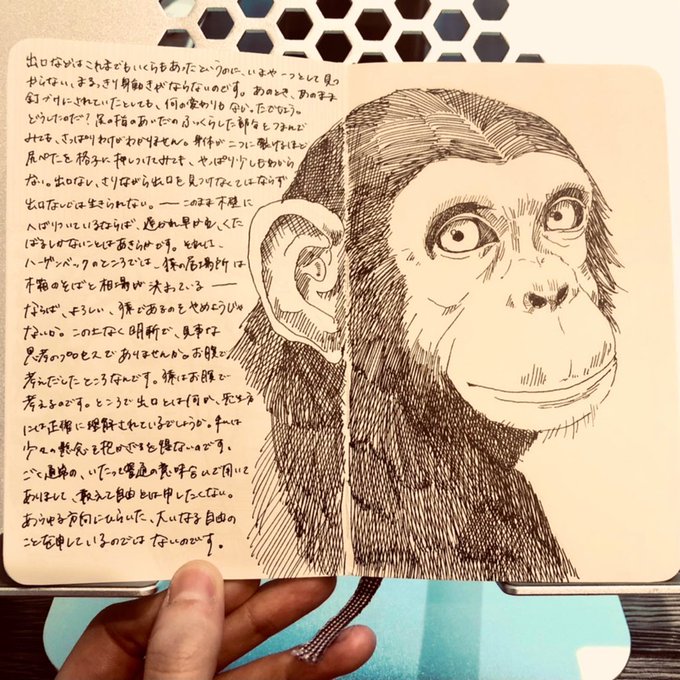 出口などはこれまでもいくらもあったというのに、いまや一つとして見つ
からない、まるっきり身動きがならないのです。あのとき、あのまま
釘づけにされていたとしても、何の変わりもなかったでしょう。
どうしたのだ？足の指のあいだのふっくらした部分をつまんで
みても、さっぱりわけがわかりません。身体が二つに裂けるほど
尻ぺたを格子に押しつけてみても、やっぱり少しもわから
ない。出口なし、さりながら出口を見つけなくてはならず
出口なしでは生きられない。――このまま木壁に
へばりついているならば、遅かれ早かれ、くた
ばるしかないことはあきらかです。それに、
ハーゲンベックのところでは、猿の居場所は
木箱のそばと相場が決まっている――
ならば、よろしい、猿であるのをやめようじゃ
ないか。この上なく明晰で、見事な
思考のプロセスでありませんか。お腹で
考えだしたところなんです。猿はお腹で
考えるのです。ところで出口とは何か、先生方
には正確に理解されているでしょうか。私は
少々の懸念を抱かざるを得ないのです。
ごく通常の、いたって普通の意味合いで用いて
ありまして、敢えて自由とは申したくない。
あらゆる方向にひらいた、大いなる自由の
ことを申しているのではないのです。